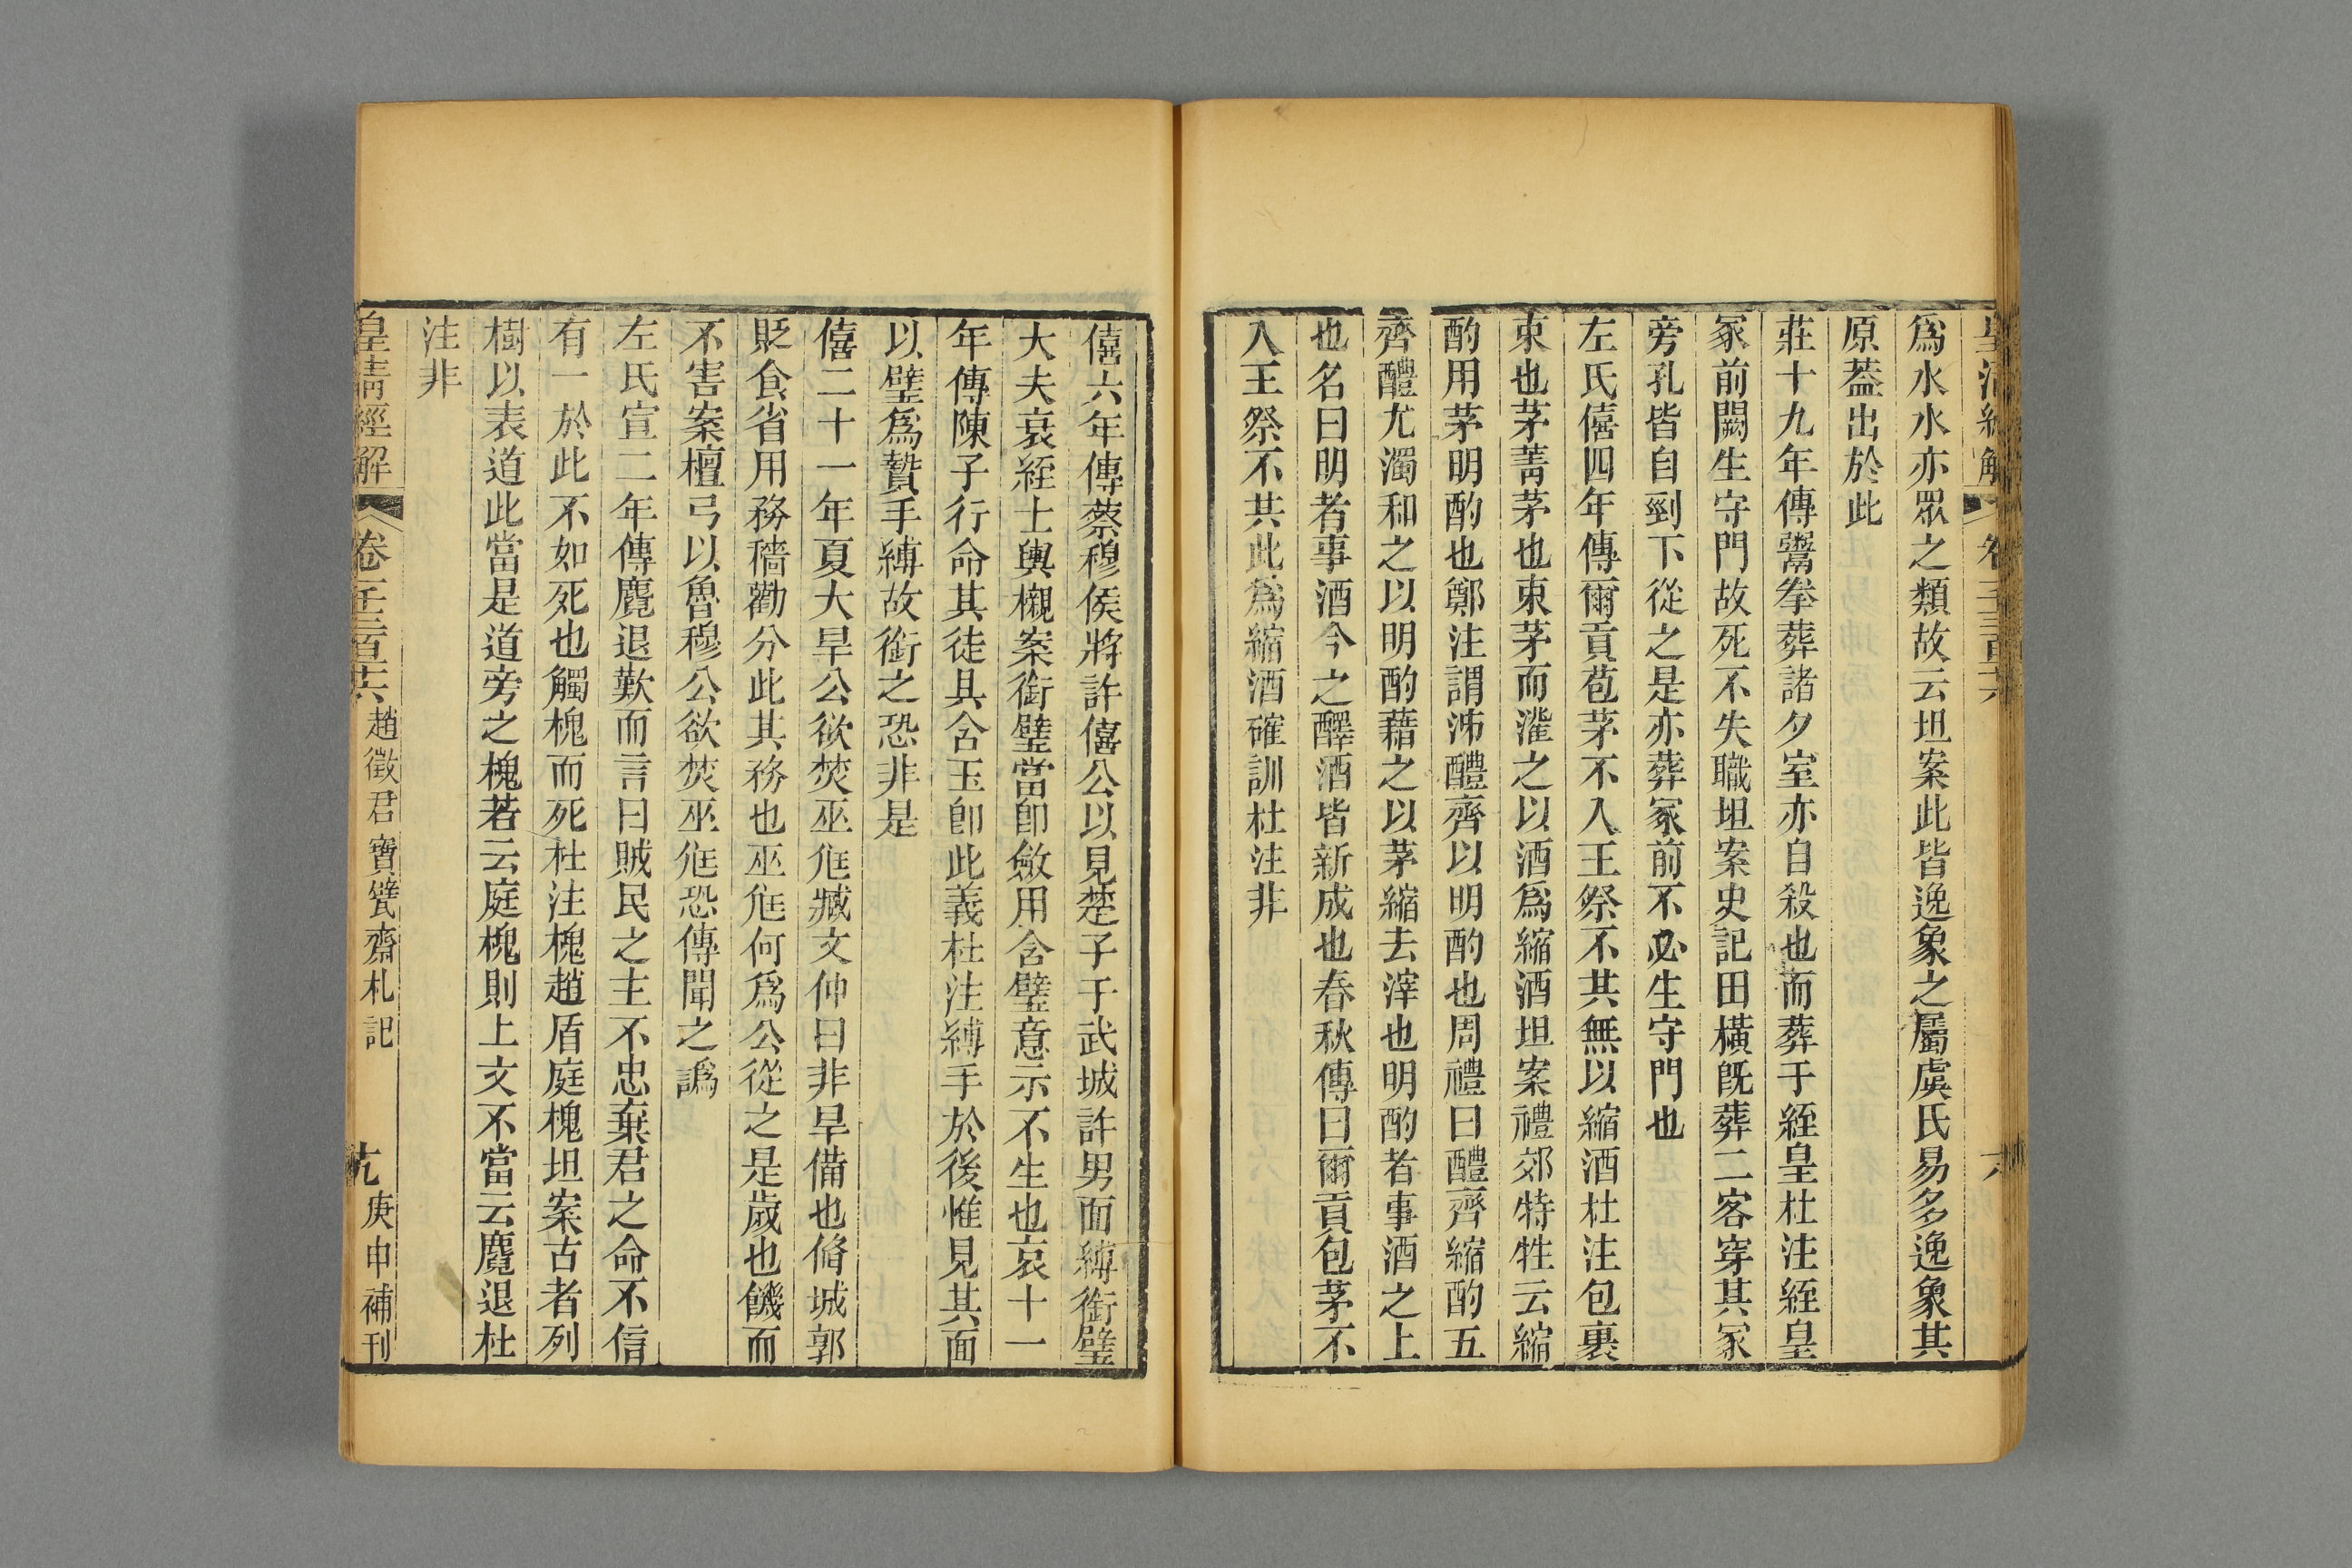 爲水水亦眾之類故云坦案此皆逸象之屬虞氏易多逸象其
原蓋出於此
莊十九年傳鬻拳葬諸夕室亦自殺也而葬于絰皇杜注絰皇
冢前闕生守門故死不失職坦案史記田橫旣葬二客穿其冢
旁孔皆自剄下從之是亦葬冢前不必生守門也
左氏僖四年傳爾貢苞茅不入王祭不共無以縮酒杜注包裹
束也茅菁茅也束茅而灌之以酒爲縮酒坦案禮郊特牲云縮
酌用茅明酌也鄭注謂泲醴齊以明酌也周禮曰醴齊縮酌五
齊醴尤濁和之以明酌藉之以茅縮去滓也明酌者事酒之上
也名曰明者事酒今之醳酒皆新成也春秋傳曰爾貢包茅不
入王祭不共此爲縮酒確訓杜注非
僖六年傳蔡穆侯將許僖公以見楚子于武城許男面縛銜璧
大夫衰絰士輿櫬案銜璧當卽斂用含璧意示不生也哀十一
年傳陳子行命其徒具含玉卽此義杜注縛手於後惟見其面
以璧爲贄手縛故銜之恐非是
僖二十一年夏大旱公欲焚巫尫臧文仲曰非旱備也脩城郭
貶食省用務穡勸分此其務也巫尫何爲公從之是歲也饑而
不害案檀弓以魯穆公欲焚巫尫恐傳聞之譌
左氏宣二年傳麑退歎而言曰賊民之主不忠棄君之命不信
有一於此不如死也觸槐而死杜注槐趙盾庭槐坦案古者列
樹以表道此當是道旁之槐若云庭槐則上文不當云麑退杜
注非
皇清經解 卷一千三百十六 趙徵君寶甓齋札記 九 庚申補刊